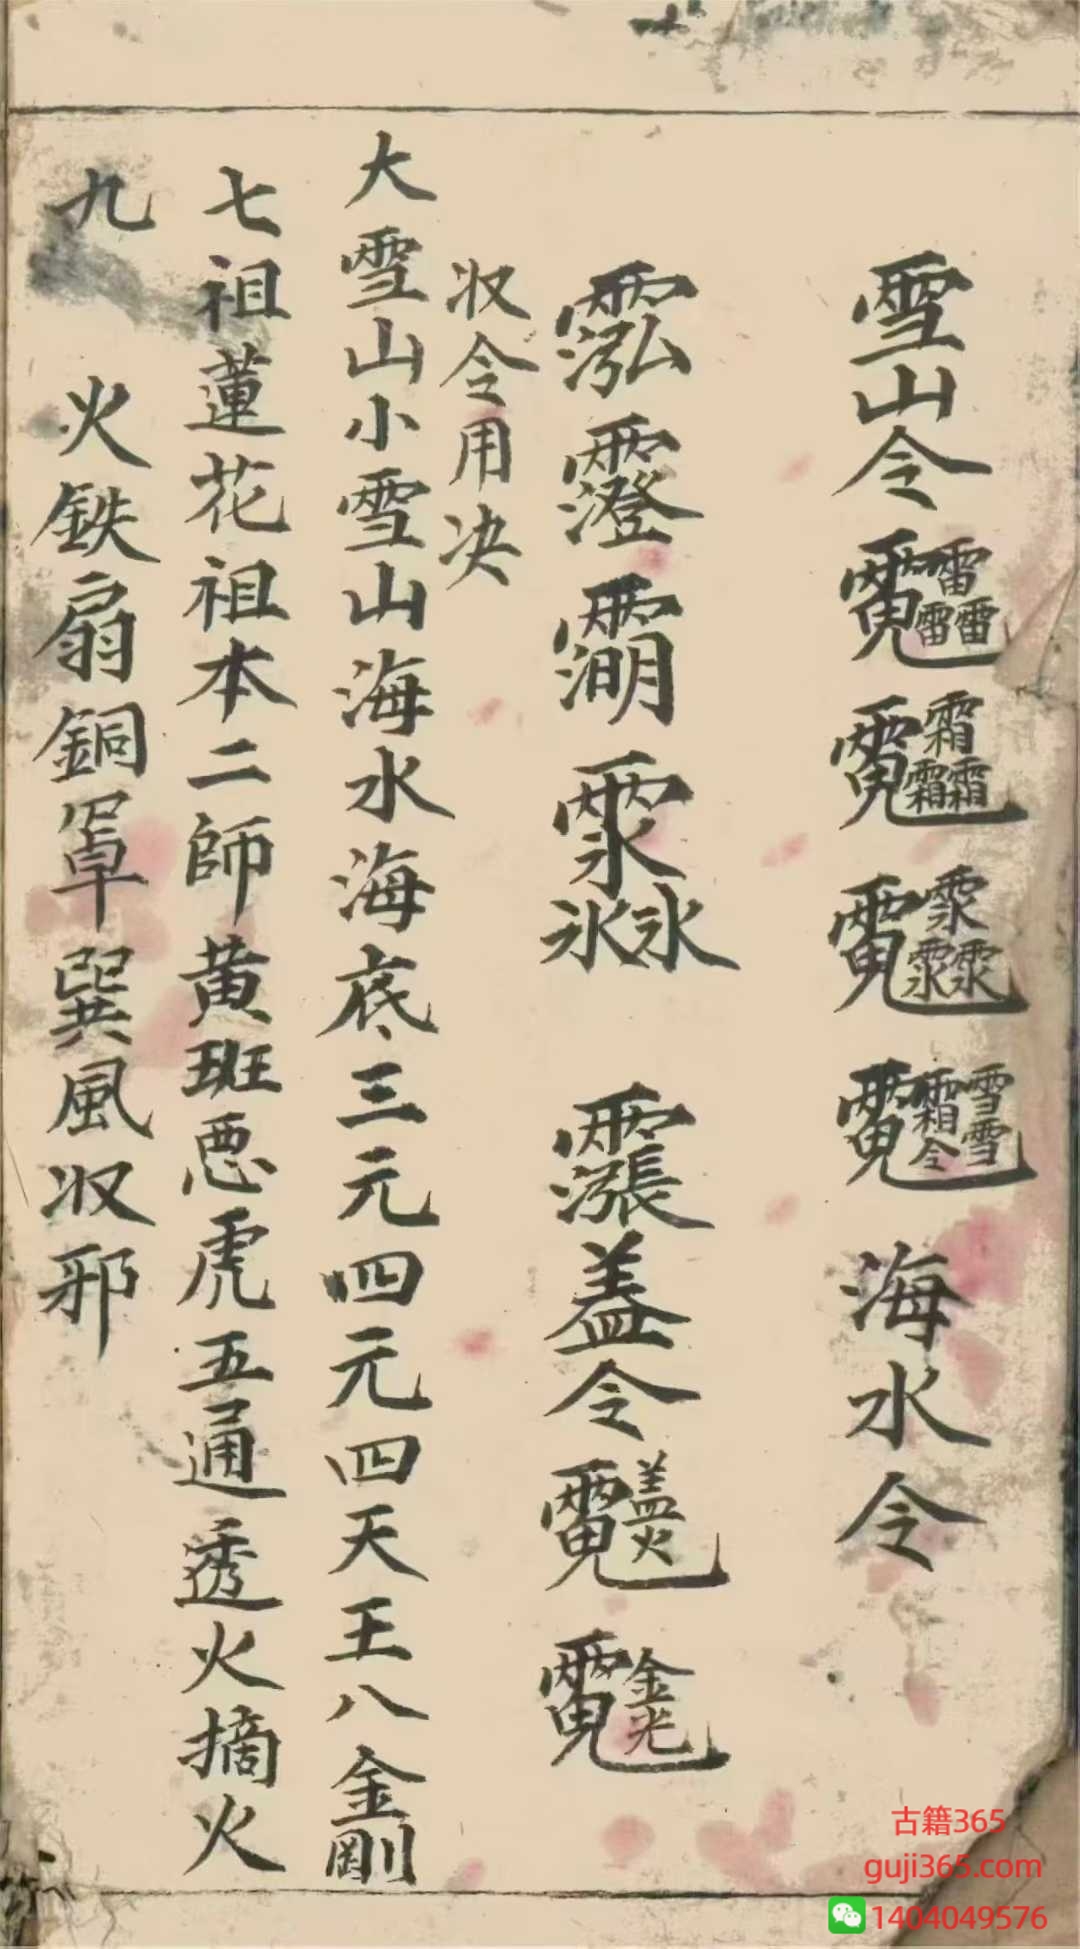 雪山令 雷雷雷 霜霜霜 雪霜雪令 海水令
水水 盖令 盖火 金光
収令用决
大雪山小雪山海水海底三元四元四天王八金剛
七祖蓮花祖本二師黄班惡虎五通透火摘火
九 火鉄扇銅罩巽風収邪
古籍365
guji365.com
1404049576